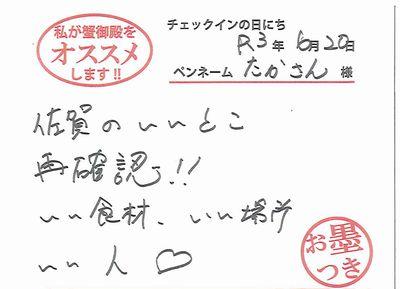 私が蟹御殿を
オススメ
します!!
チェックインの日にち
R3年 6月20日
ペンネーム たかさん 様
佐賀のいいとこ
再確認!!
いい食材、いい場所
いい人♡
お墨
つき